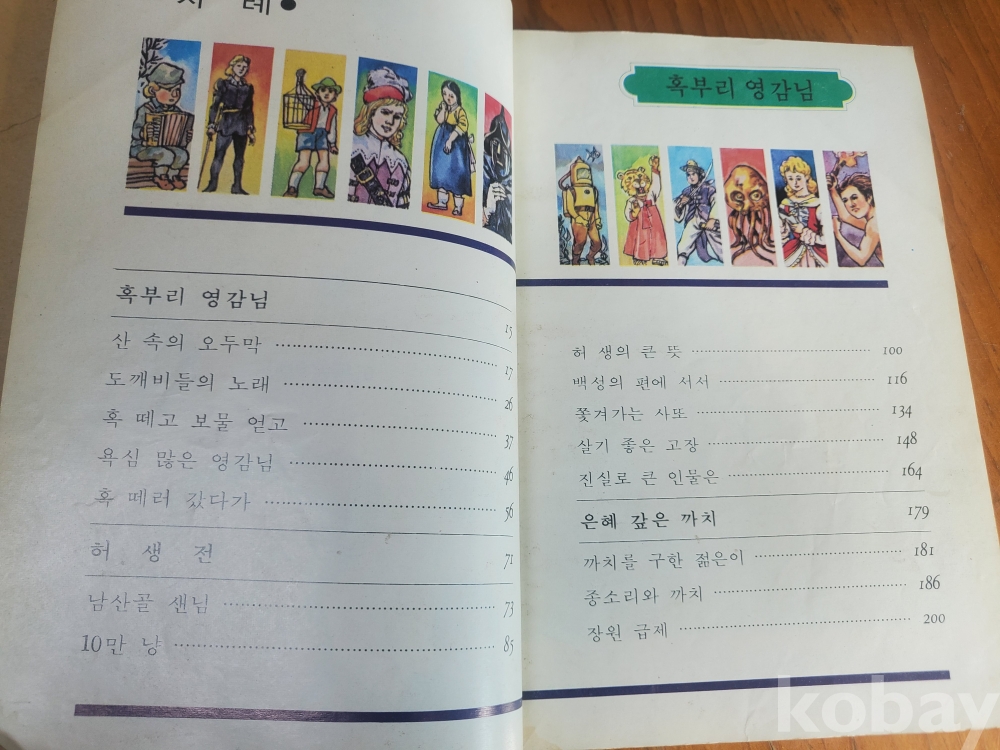 차 례●
혹부리 영감님 15
산 속의 오두막 17
도깨비들의 노래 26
혹 떼고 보물 얻고 37
욕심 많은 영감님 46
혹 떼러 갔다가 56
허 생 전 71
남산골 샌님 73
10만 냥 85
혹부리 영감님
허 생의 큰 뜻 100
백성의 편에 서서 116
쫓겨가는 사또 134
살기 좋은 고장 148
진실로 큰 인물은 164
은혜 갚은 까치 179
까치를 구한 젊은이 181
종소리와 까치 186
장원 급제 200
kobay